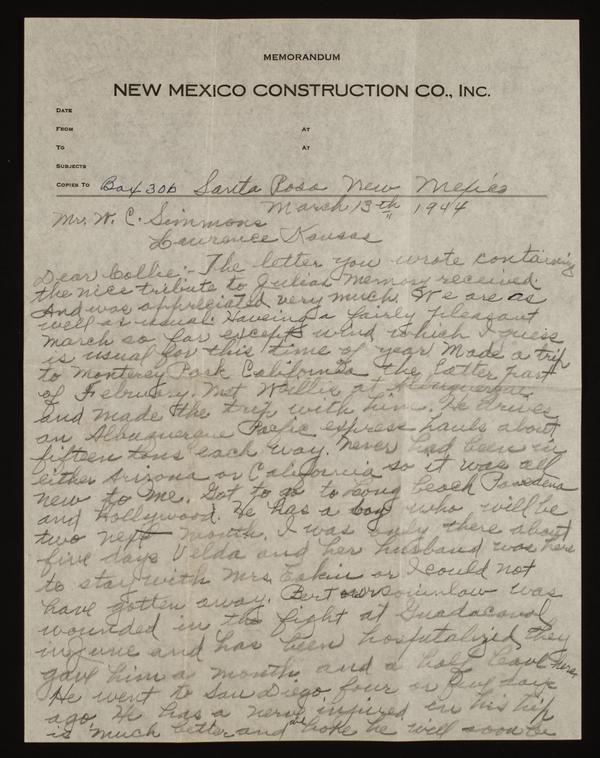 MEMORANDUM
NEW MEXICO CONSTRUCTION CO., INC.
DATE
FROM AT
TO AT
SUBJECTS
COPIES TO Box 306 Santa Rosa New Mexico
March 13th 1944
Mr. W. C. Simmons
Lawrence Kansas
Dear Collie:- The letter you wrote containing
the nice tribute to Julias Memory received
And was appreciated very much. We are as
well as usual. Haveing a fairly pleasant
march so far except wind which I guess
is usual for this time of year Made a trip
to Monterey Park California the latter part
of February. Met Willis at Albuquerque
and made the trip with him. He drives
an Albuquerque Pacific express hauls about
fifteen tons each way. Never had been in
either Arizona or California so it was all
new to me. Got to go to Long beach Pasedena
and Hollywood. He has a boy who will be
two next month. I was only there about
five days Velda and her husband was here
to stay with Mrs. Eakin or I could not
have gotten away. Bert our soninlaw was
wounded in the fight at Guadacanal
in June and has been hospitalized, they
gave him a month and a half leave here
He went to San Diego four or five days
ago. He has a nerve injured in his hip
is much better and we hope he will soon be